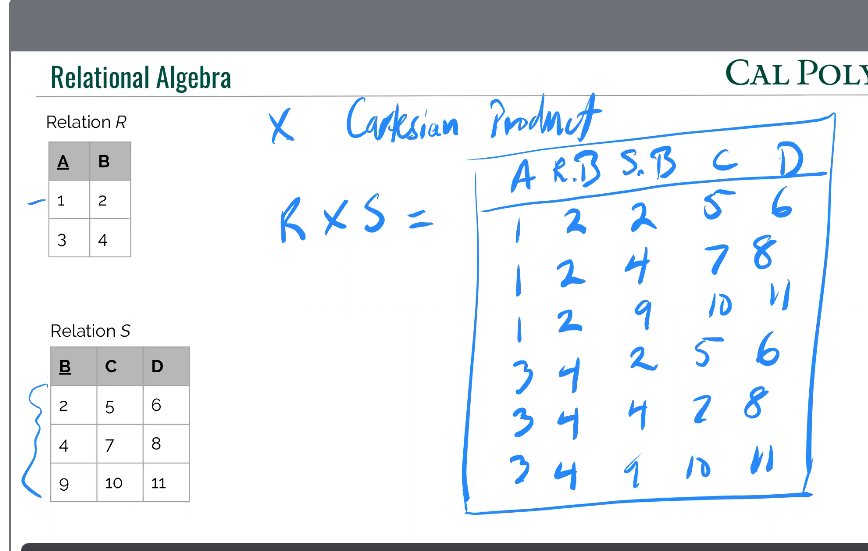 Relational Algebra
CAL POLY
Relation R
A B
1 2
3 4
Relation S
B C D
2 5 6
4 7 8
9 10 11
X Cartesian Product
R X S =
A R.B S.B C D
1 2 2 5 6
1 2 4 7 8
1 2 9 10 11
3 4 2 5 6
3 4 4 7 8
3 4 9 10 11